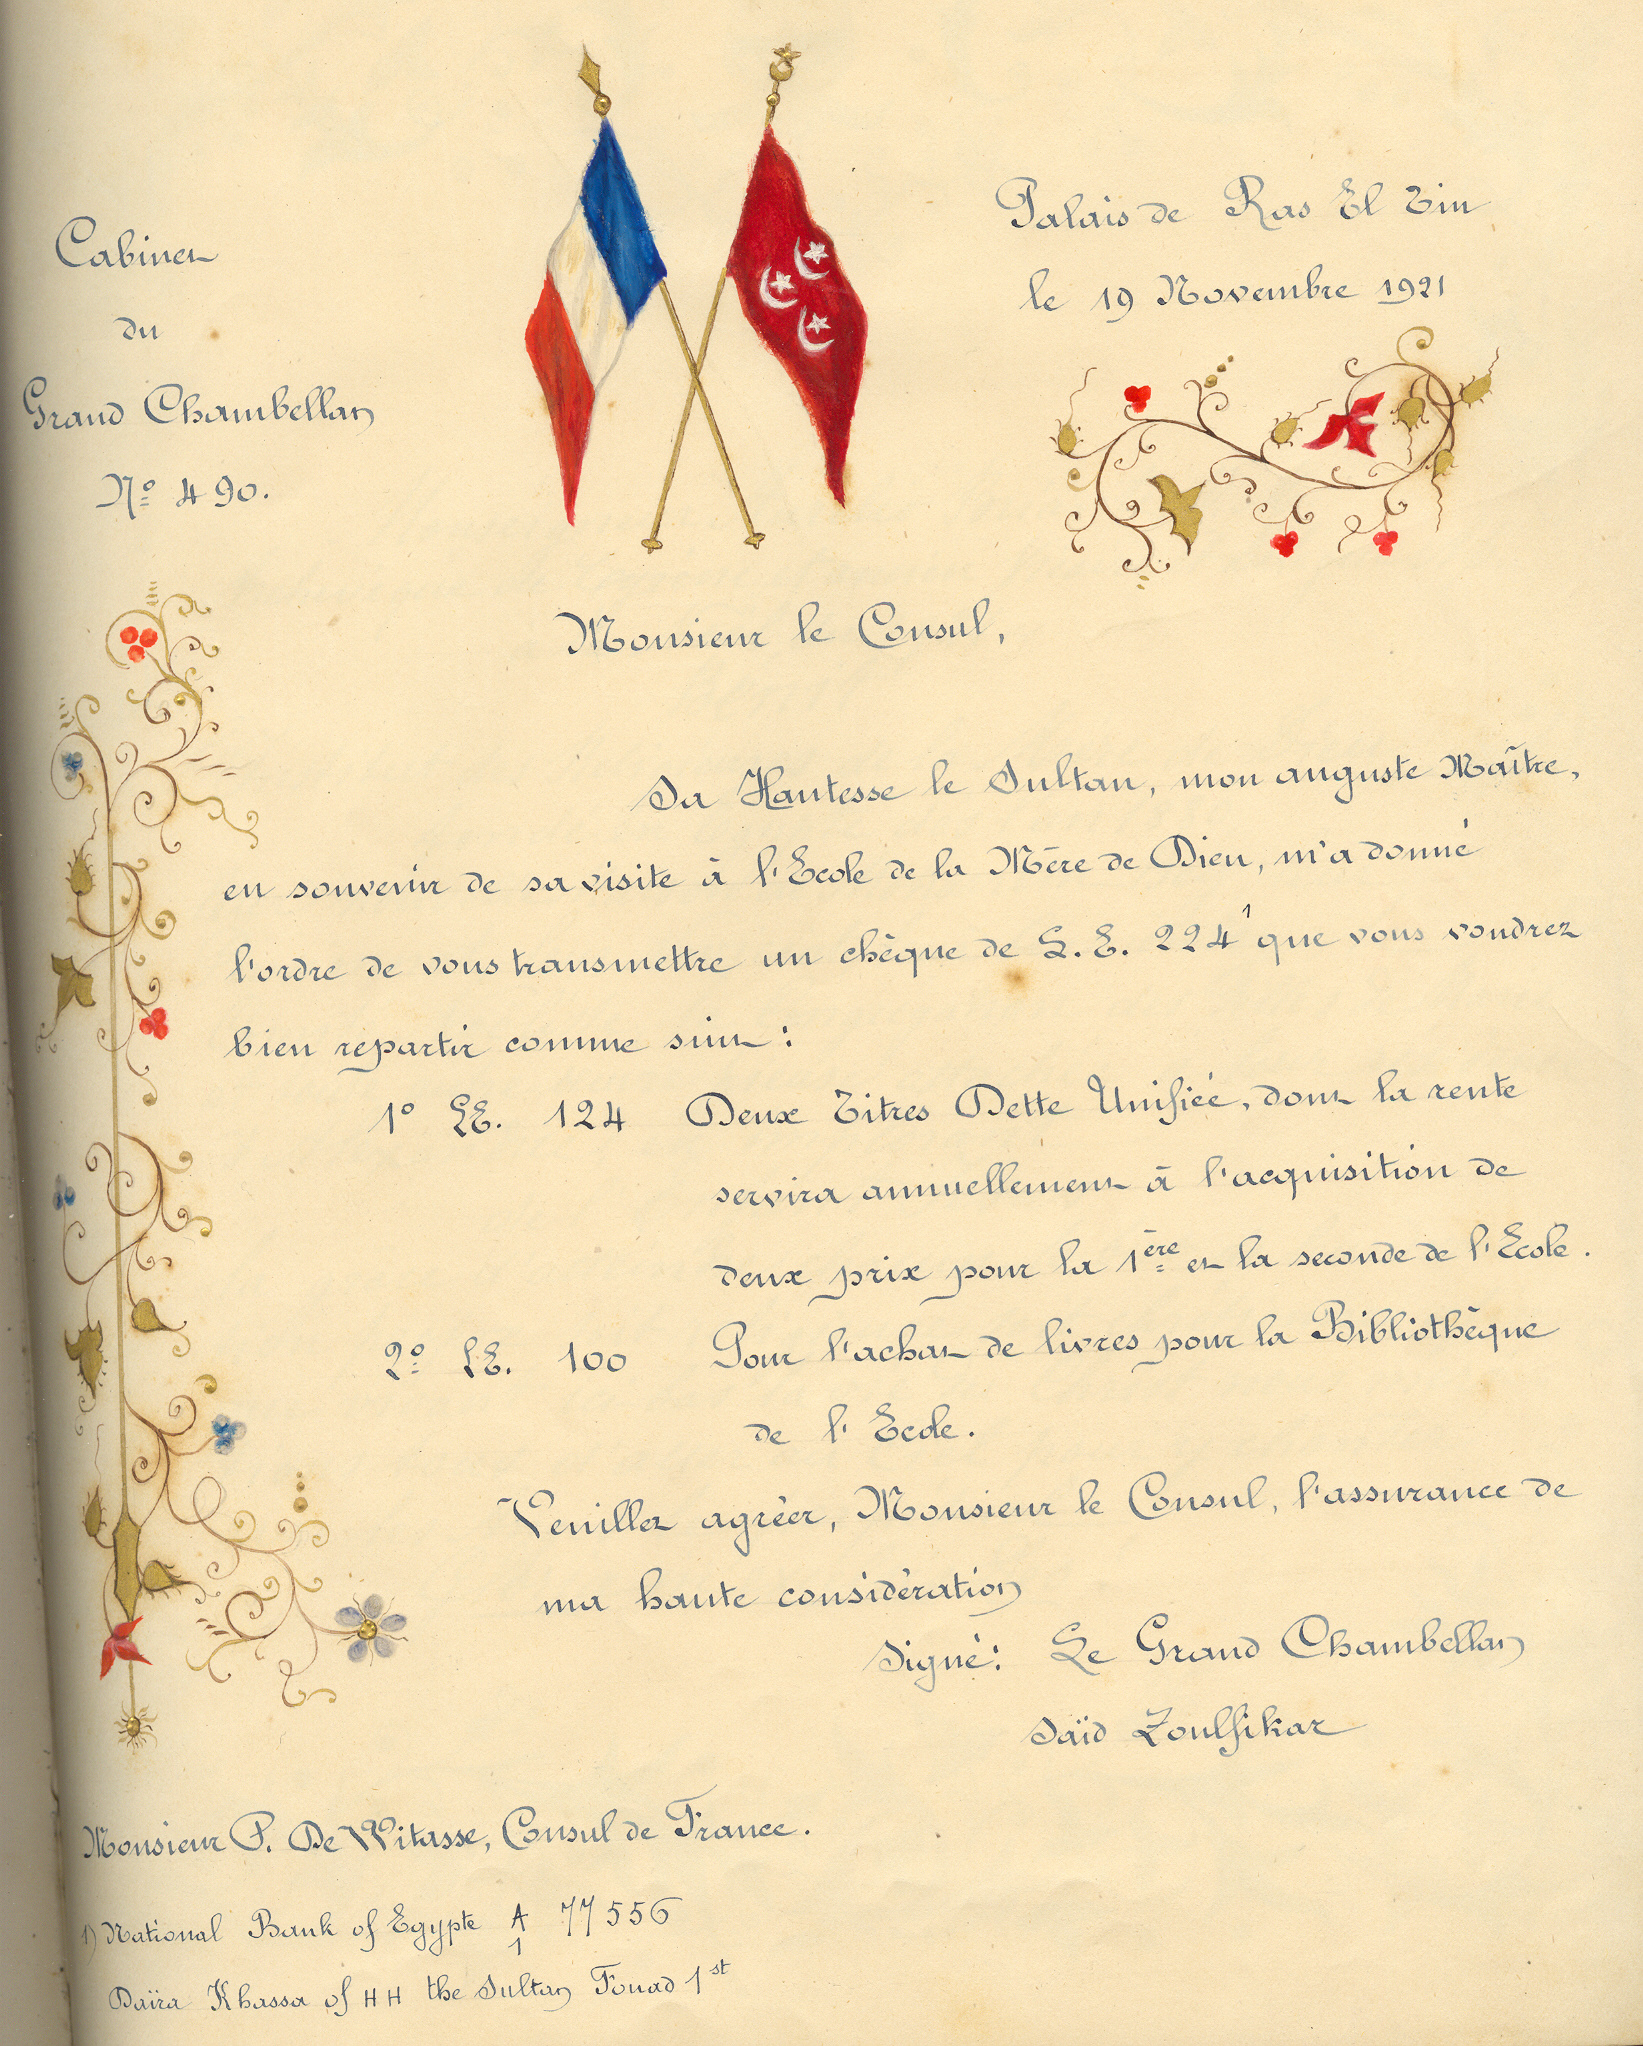 Cabinet
du
Grand Chambellan
No 490.
Palais de Ras El Tin
le 19 Novembre 1921
Monsieur le Consul,
Sa Hautesse le Sultan, mon auguste Maître,
en souvenir de sa visite à l'Ecole de la Mère de Dieu, m'a donné
l'ordre de vous transmettre un chèque de L.E. 224 1 que vous voudrez
bien repartir comme suit :
1° LE. 124 Deux Titres Dette Unifiée, dont la rente
servira annuellement à l'acquisition de
deux prix pour la 1ère et la seconde de l'Ecole.
2° LE. 100 Pour l'achat de livres pour la Bibliothèque
de l'Ecole.
Veuillez agréer, Monsieur le Consul, l'assurance de
ma haute considération
Signé: Le Grand Chambellan
Saïd Zoulfikar
Monsieur P. De Witasse, Consul de France.
1) National Bank of Egypte A/1 77556
Daïra Khassa of HH the Sultan Fouad 1st